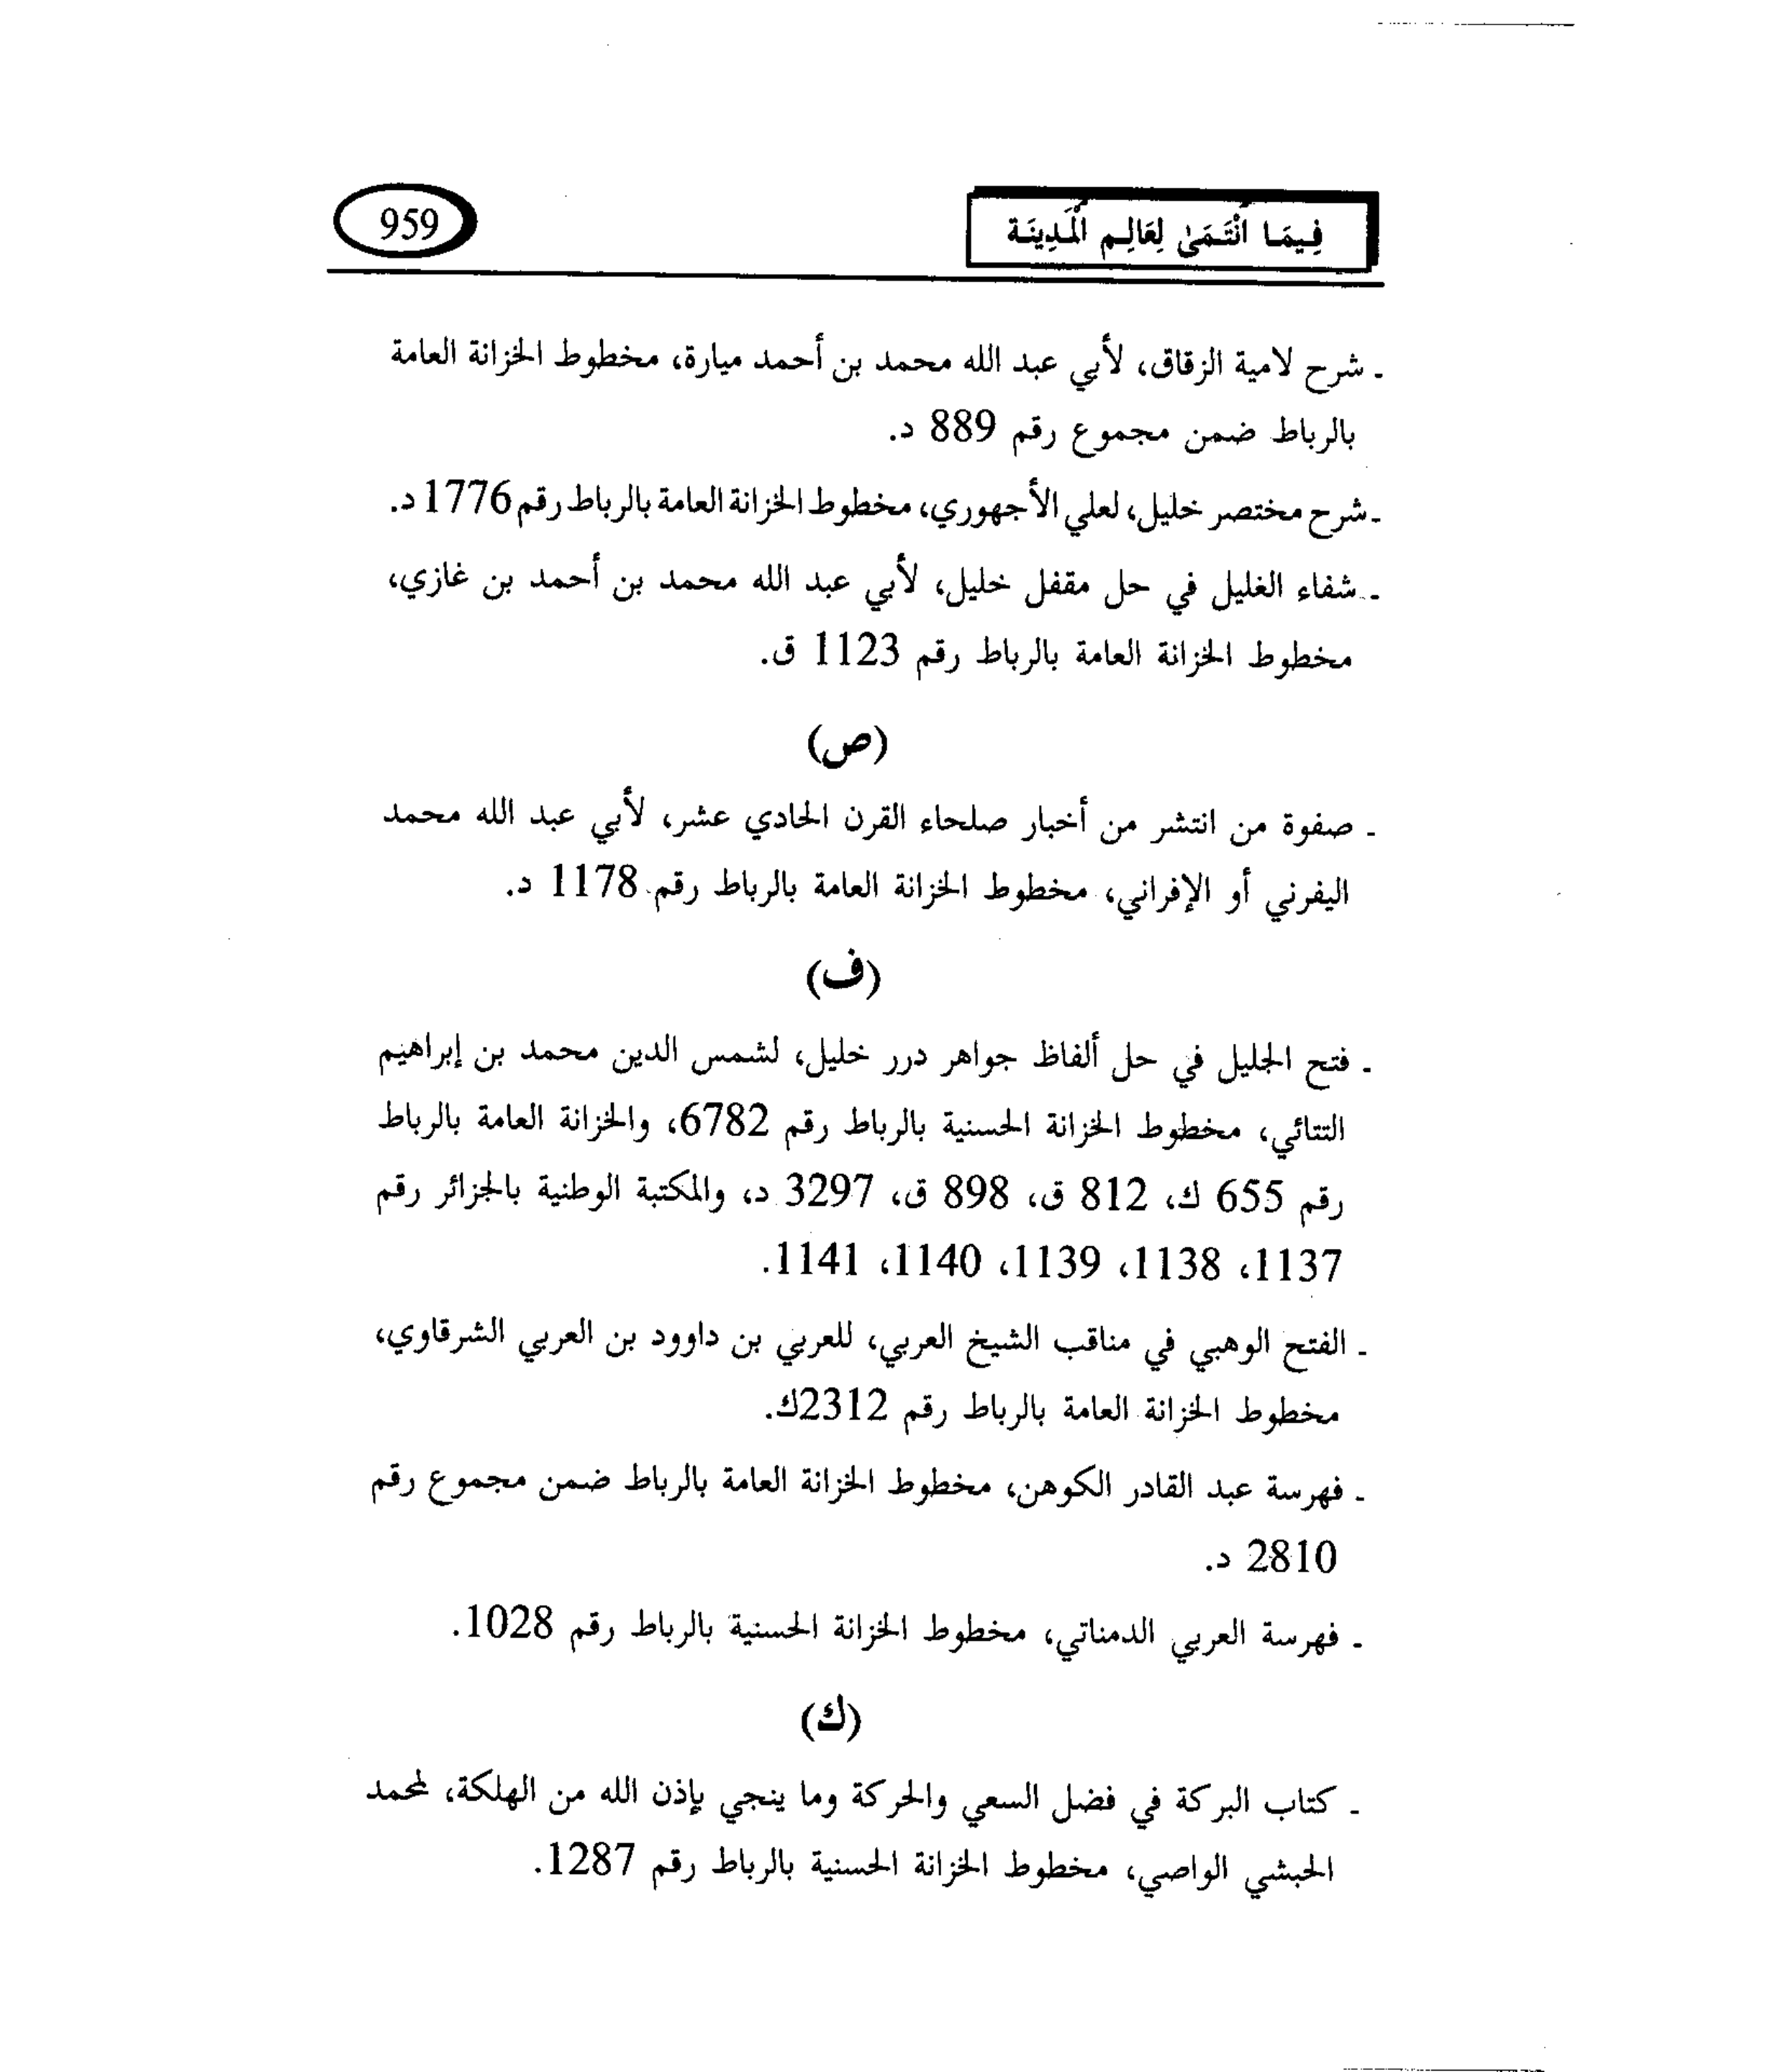 فِيمَا ٱنْتَمَىٰ لِعَالِمِ ٱلْمَدِينَة
959
ـ شرح لامية الزقاق، لأبي عبد الله محمد بن أحمد ميارة، مخطوط الخزانة العامة
بالرباط ضمن مجموع رقم 889 د.
ـ شرح مختصر خليل، لعلي الأجهوري، مخطوط الخزانة العامة بالرباط رقم 1776 د.
ـ شفاء الغليل في حل مقفل خليل، لأبي عبد الله محمد بن أحمد بن غازي،
مخطوط الخزانة العامة بالرباط رقم 1123 ق.
(ص)
ـ صفوة من انتشر من أخبار صلحاء القرن الحادي عشر، لأبي عبد الله محمد
اليفرني أو الإفراني، مخطوط الخزانة العامة بالرباط رقم 1178 د.
(ف)
ـ فتح الجليل في حل ألفاظ جواهر درر خليل، لشمس الدين محمد بن إبراهيم
التتائي، مخطوط الخزانة الحسنية بالرباط رقم 6782، والخزانة العامة بالرباط
رقم 655 ك، 812 ق، 898 ق، 3297 د، والمكتبة الوطنية بالجزائر رقم
1137، 1138، 1139، 1140، 1141.
ـ الفتح الوهبي في مناقب الشيخ العربي، للعربي بن داوود بن العربي الشرقاوي،
مخطوط الخزانة العامة بالرباط رقم 2312ك.
ـ فهرسة عبد القادر الكوهن، مخطوط الخزانة العامة بالرباط ضمن مجموع رقم
2810 د.
ـ فهرسة العربي الدمناتي، مخطوط الخزانة الحسنية بالرباط رقم 1028.
(ك)
ـ كتاب البركة في فضل السعي والحركة وما ينجي بإذن الله من الهلكة، لمحمد
الحبشي الواصي، مخطوط الخزانة الحسنية بالرباط رقم 1287.